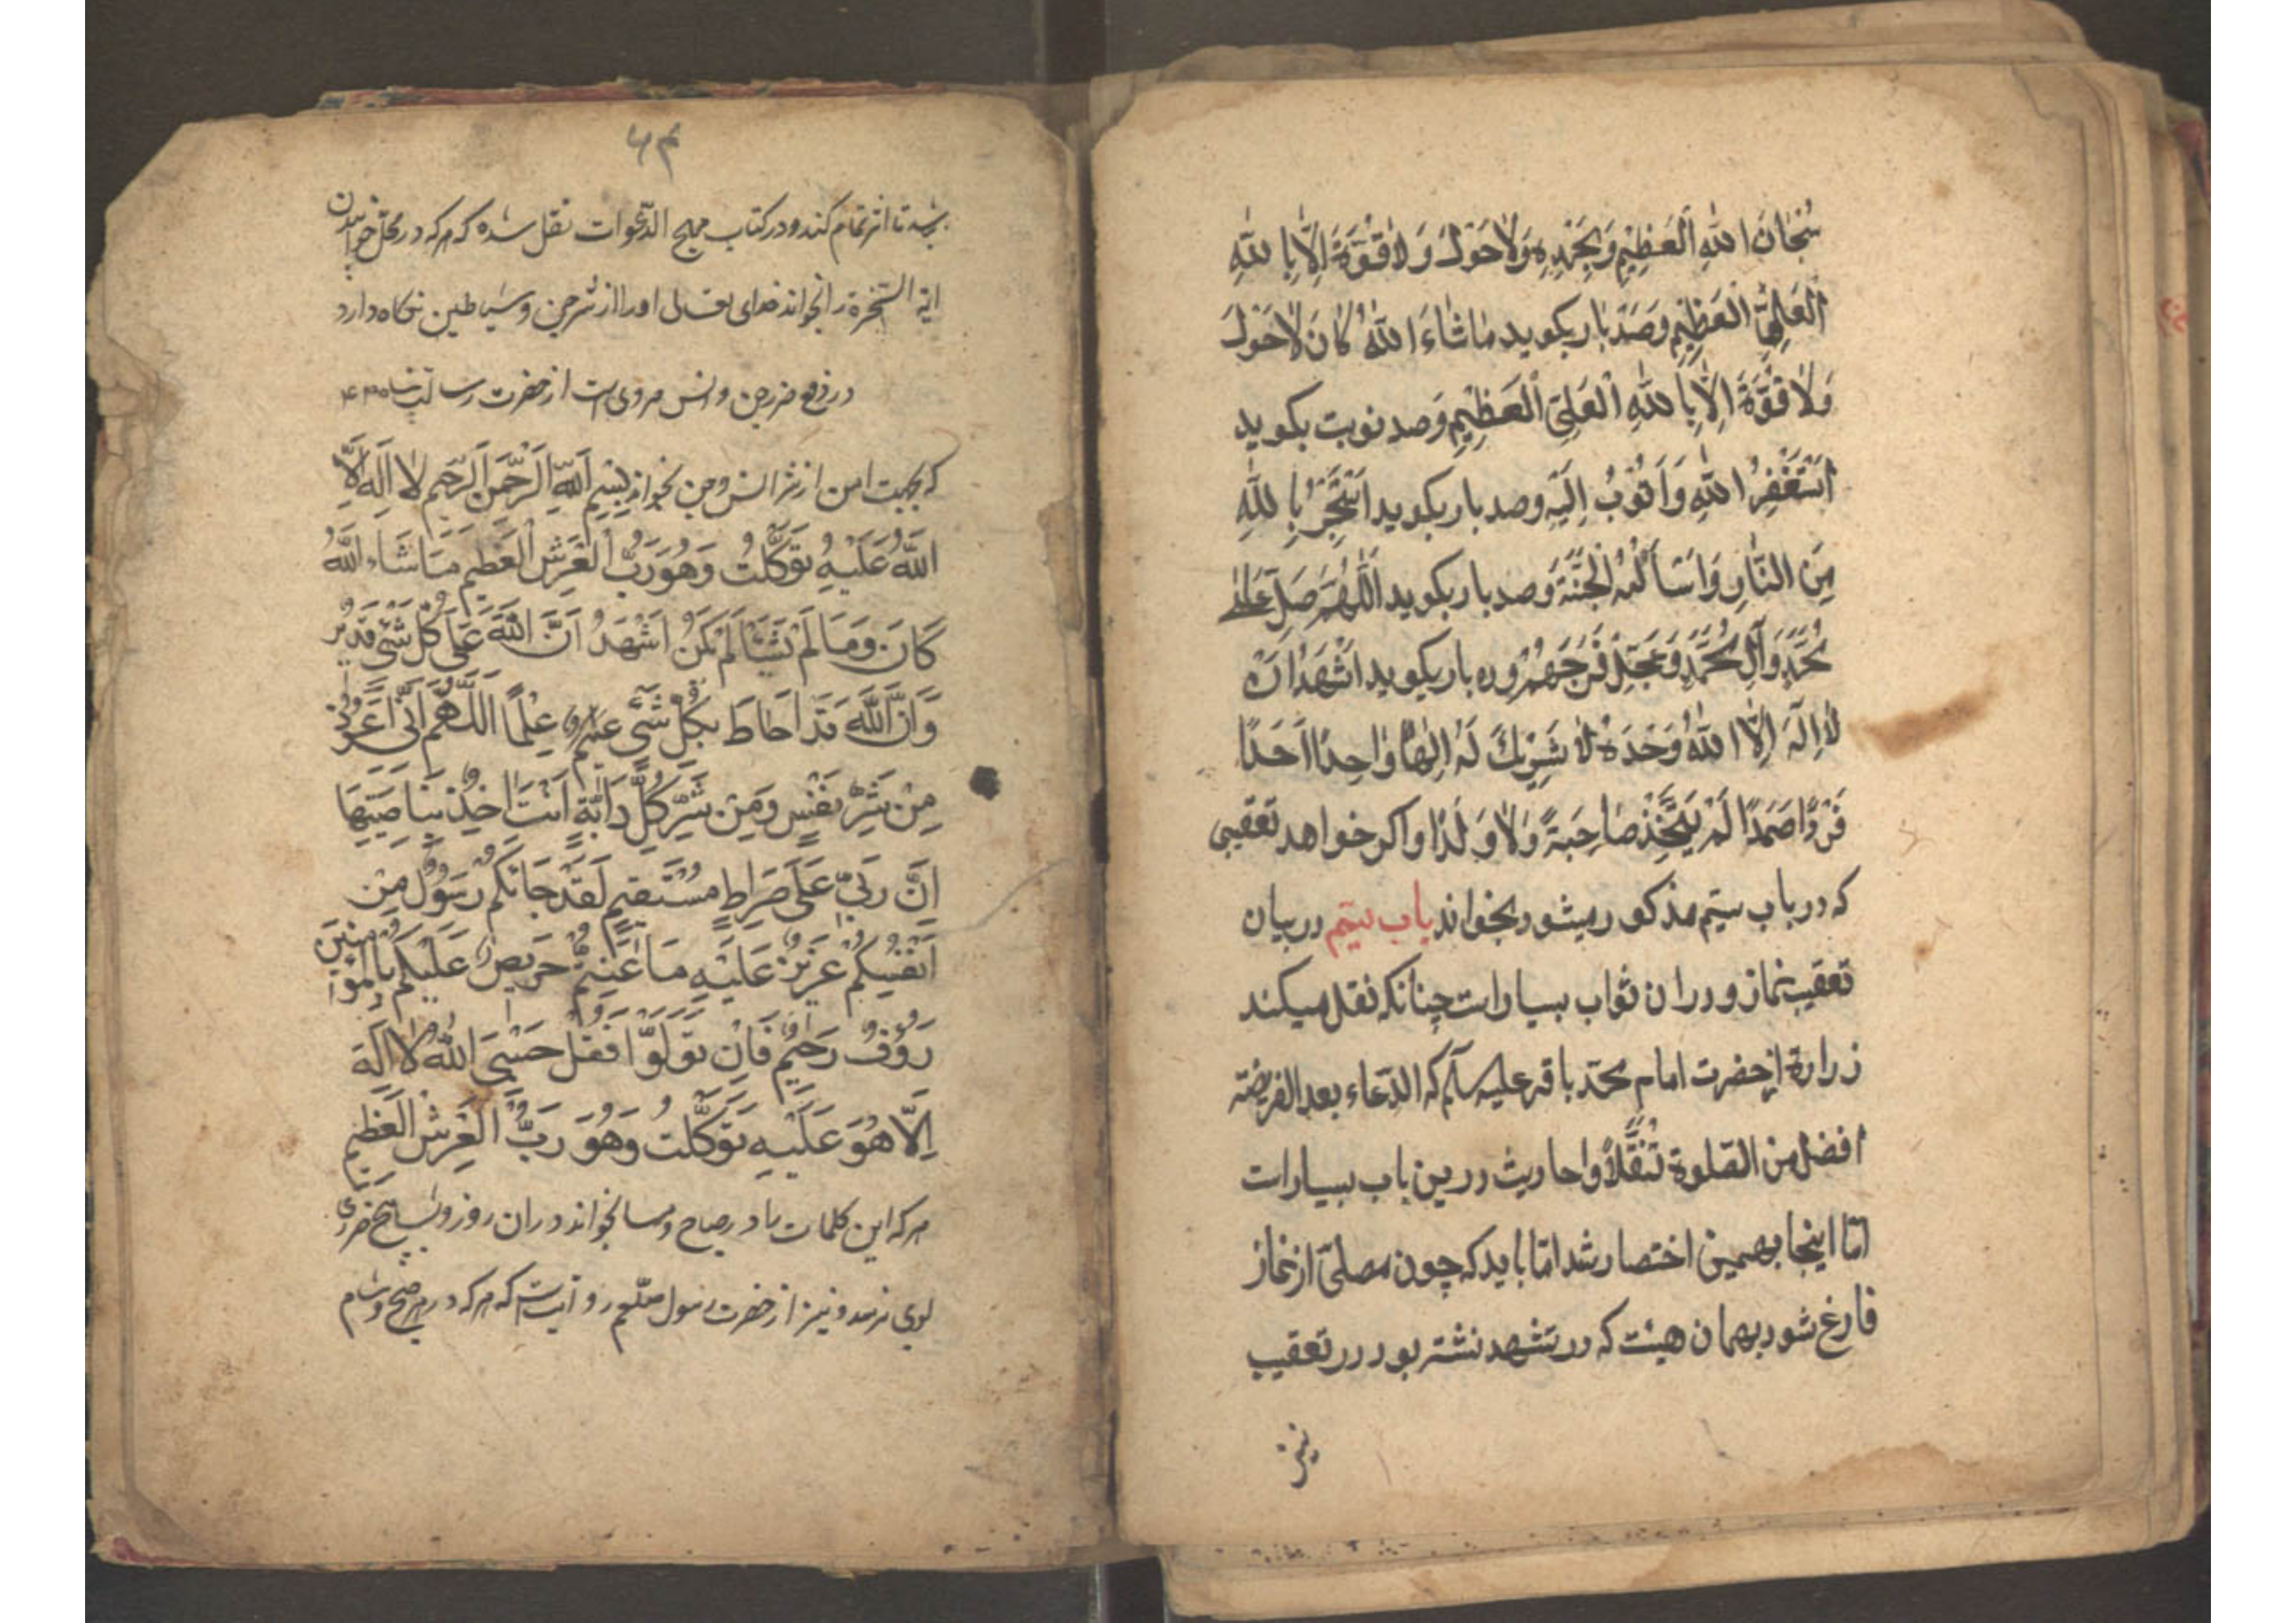 سُبْحَانَ اللّٰهِ الْعَظِيْمِ وَبِحَمْدِهِ وَلَا حَوْلَ وَلَا قُوَّةَ اِلَّا بِاللّٰهِ
الْعَلِيِّ الْعَظِيْمِ وَصَد بار بكويد مَا شَاءَ اللّٰهُ كَانَ لَا حَوْلَ
وَلَا قُوَّةَ اِلَّا بِاللّٰهِ الْعَلِيِّ الْعَظِيْمِ وَصد نوبت بكويد
اَسْتَغْفِرُ اللّٰهَ وَاَتُوبُ اِلَيْهِ وصد بار بكويد اَسْتَجِيْرُ بِاللّٰهِ
مِنَ النَّارِ وَاَسْاَلُهُ الْجَنَّةَ وَصد بار بكويد اَللّٰهُمَّ صَلِّ عَلٰى
مُحَمَّدٍ وَآلِ مُحَمَّدٍ وَعَجِّلْ فَرَجَهُمْ وده بار بكويد اَشْهَدُ اَنْ
لَا اِلٰهَ اِلَّا اللّٰهُ وَحْدَهُ لَا شَرِيْكَ لَهُ اِلٰهًا وَاحِدًا اَحَدًا
فَرْدًا صَمَدًا لَمْ يَتَّخِذْ صَاحِبَةً وَلَا وَلَدًا واكر خواهد تعقيبى
كه در باب بيستم مذكور ميشود بخواند باب بيستم در بيان
تعقيب نماز و در ان ثواب بسيار است چنانكه نقل ميكند
زرارة از حضرت امام محمّد باقر عليه سلّم كه الدّعاء بعد الفريضة
افضل من الصّلوة تنفّلاً واحاديث درين باب بسيار است
امّا اينجا بهمين اختصار شد امّا بايد كه چون مصلّى از نماز
فارغ شود بهمان هيئت كه در تشهد نشسته بود در تعقيب
۶۴
تا اثر تمام كند و در كتاب مهج الدّعوات نقل شده كه هر كه در محل خوابيدن
اية السّخرة را بخواند خداى تعالى او را از شر جن و شياطين نكاه دارد
در دفع ضرر جن وانس مروى است از حضرت رسالت پناه
كه بجهت امن از شر انس و جن بخواند بِسْمِ اللّهِ الرَّحْمنِ الرَّحِيمِ لا اِلَهَ اِلَّا
اللّهُ عَلَيْهِ تَوَكَّلْتُ وَهُوَ رَبُّ الْعَرْشِ الْعَظِيمِ مَا شَاءَ اللّهُ
كَانَ وَمَا لَمْ يَشَأْ لَمْ يَكُنْ اَشْهَدُ اَنَّ اللّهَ عَلَى كُلِّ شَيْءٍ قَدِيرٌ
وَاَنَّ اللّهَ قَدْ اَحَاطَ بِكُلِّ شَيْءٍ عِلْمًا اَللّهُمَّ اِنِّي اَعُوذُ بِكَ
مِنْ شَرِّ نَفْسِي وَمِنْ شَرِّ كُلِّ دَابَّةٍ اَنْتَ اخِذٌ بِنَاصِيَتِهَا
اِنَّ رَبِّي عَلَى صِرَاطٍ مُسْتَقِيمٍ لَقَدْ جَائَكُمْ رَسُولٌ مِنْ
اَنْفُسِكُمْ عَزِيزٌ عَلَيْهِ مَا عَنِتُّمْ حَرِيصٌ عَلَيْكُمْ بِالْمُؤْمِنِينَ
رَؤُفٌ رَحِيمٌ فَاِنْ تَوَلَّوْا فَقُلْ حَسْبِيَ اللّهُ لَا اِلَهَ
اِلَّا هُوَ عَلَيْهِ تَوَكَّلْتُ وَهُوَ رَبُّ الْعَرْشِ الْعَظِيمِ
هر كه اين كلمات را در صباح و مسا بخواند در ان روز و شب هيچ ضررى
بوى نرسد و نيز از حضرت رسول صلّعم روايت است كه هر كه در هر صبح و شام